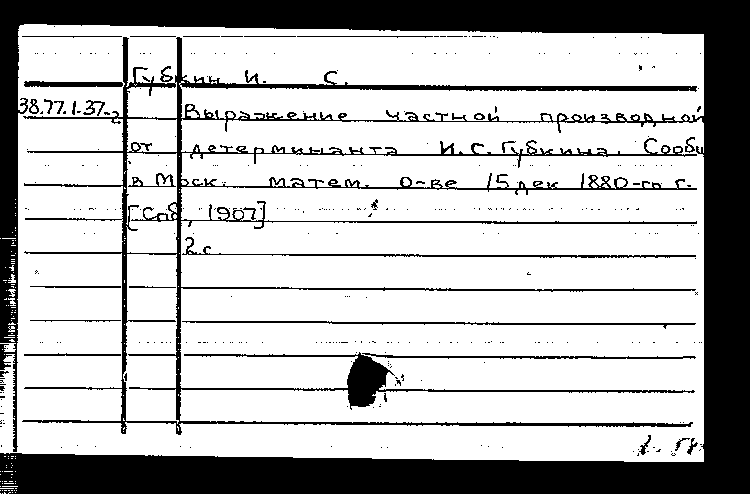 Губкин И. С.
38.77.1.37-2 Выражение частной производной
от детерминанта И.С. Губкина. Сообщ
в Моск. матем. о-ве 15 дек 1880-го г.
[Спб, 1907]
2 с.